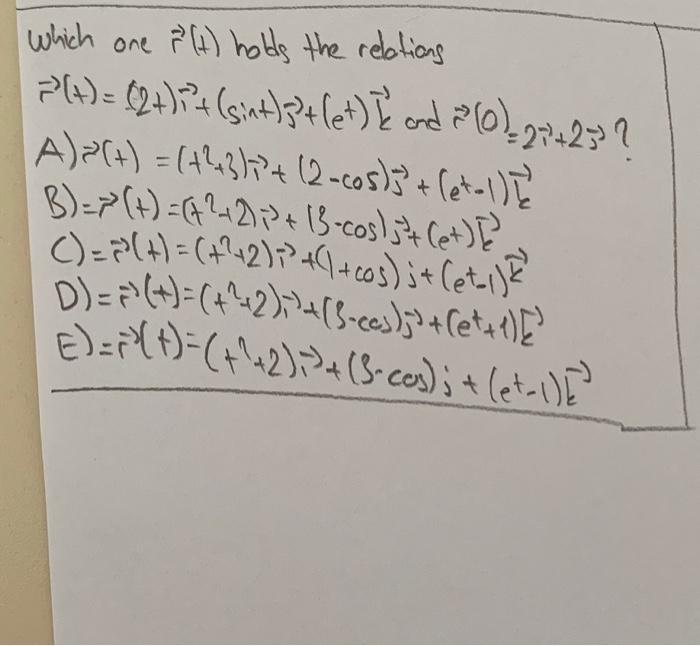 which one r⃗(t) holds the relations
r⃗(t) = (2t)i⃗ + (sint)j⃗ + (eᵗ)k⃗ and r⃗(0) = 2i⃗ + 2j⃗ ?
A) r⃗(t) = (t²+3)i⃗ + (2-cos)j⃗ + (eᵗ-1)k⃗
B) = r⃗(t) = (t²+2)i⃗ + (3-cos)j⃗ + (eᵗ)k⃗
C) = r⃗(t) = (t²+2)i⃗ + (1+cos)j + (eᵗ-1)k⃗
D) = r⃗(t) = (t²+2)i⃗ + (3-cos)j⃗ + (eᵗ+1)k⃗
E) = r⃗(t) = (t²+2)i⃗ + (3-cos)j + (eᵗ-1)k⃗